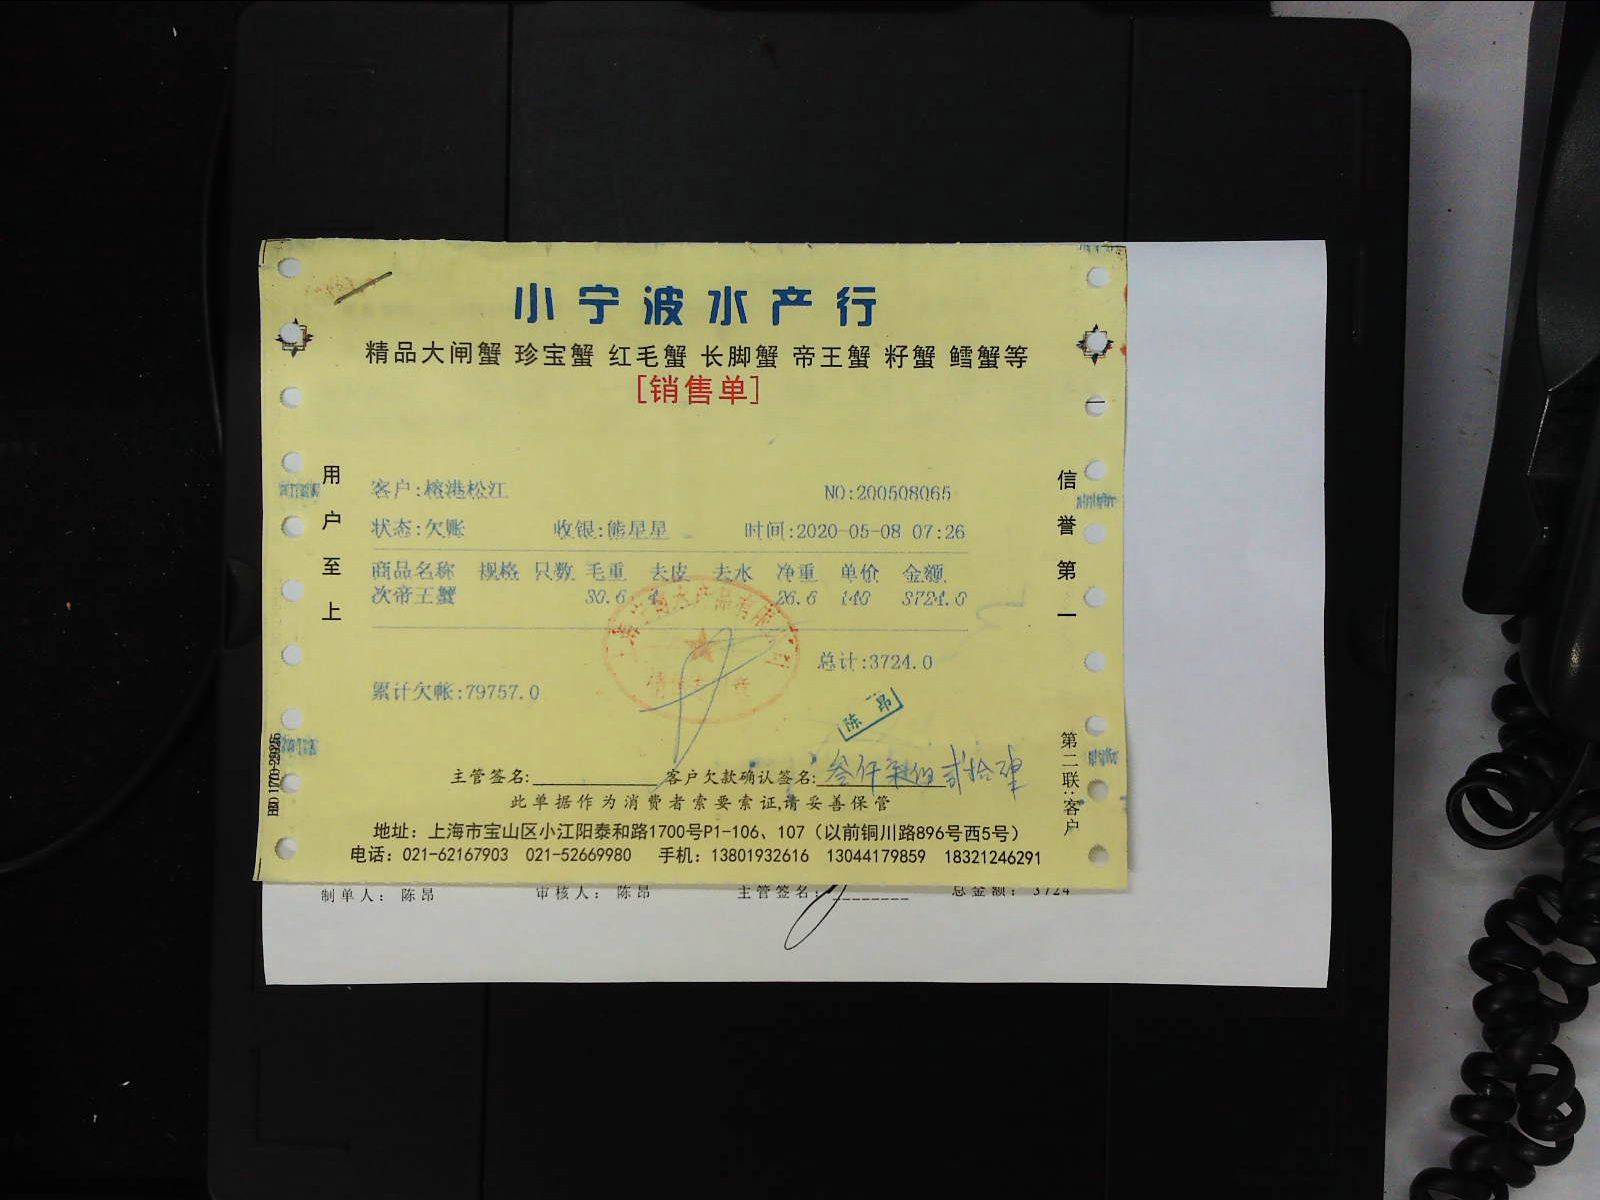 小宁波水产行
精品大闸蟹 珍宝蟹 红毛蟹 长脚蟹 帝王蟹 籽蟹 鳕蟹等
[销售单]
用户至上
信誉第一
客户:榕港松江 NO:200508065
状态:欠账 收银:熊星星 时间:2020-05-08 07:26
商品名称 规格 只数 毛重 去皮 去水 净重 单价 金额
次帝王蟹 30.6 4 26.6 140 3724.0
总计:3724.0
累计欠帐:79757.0
陈昂
主管签名: 客户欠款确认签名: 叁仟柒佰贰拾肆
此单据作为消费者索要索证,请妥善保管
第二联:客户
地址：上海市宝山区小江阳泰和路1700号P1-106、107（以前铜川路896号西5号）
电话：021-62167903 021-52669980 手机：13801932616 13044179859 18321246291
制单人： 陈昂 审核人： 陈昂 主管签名： 总金额： 3724